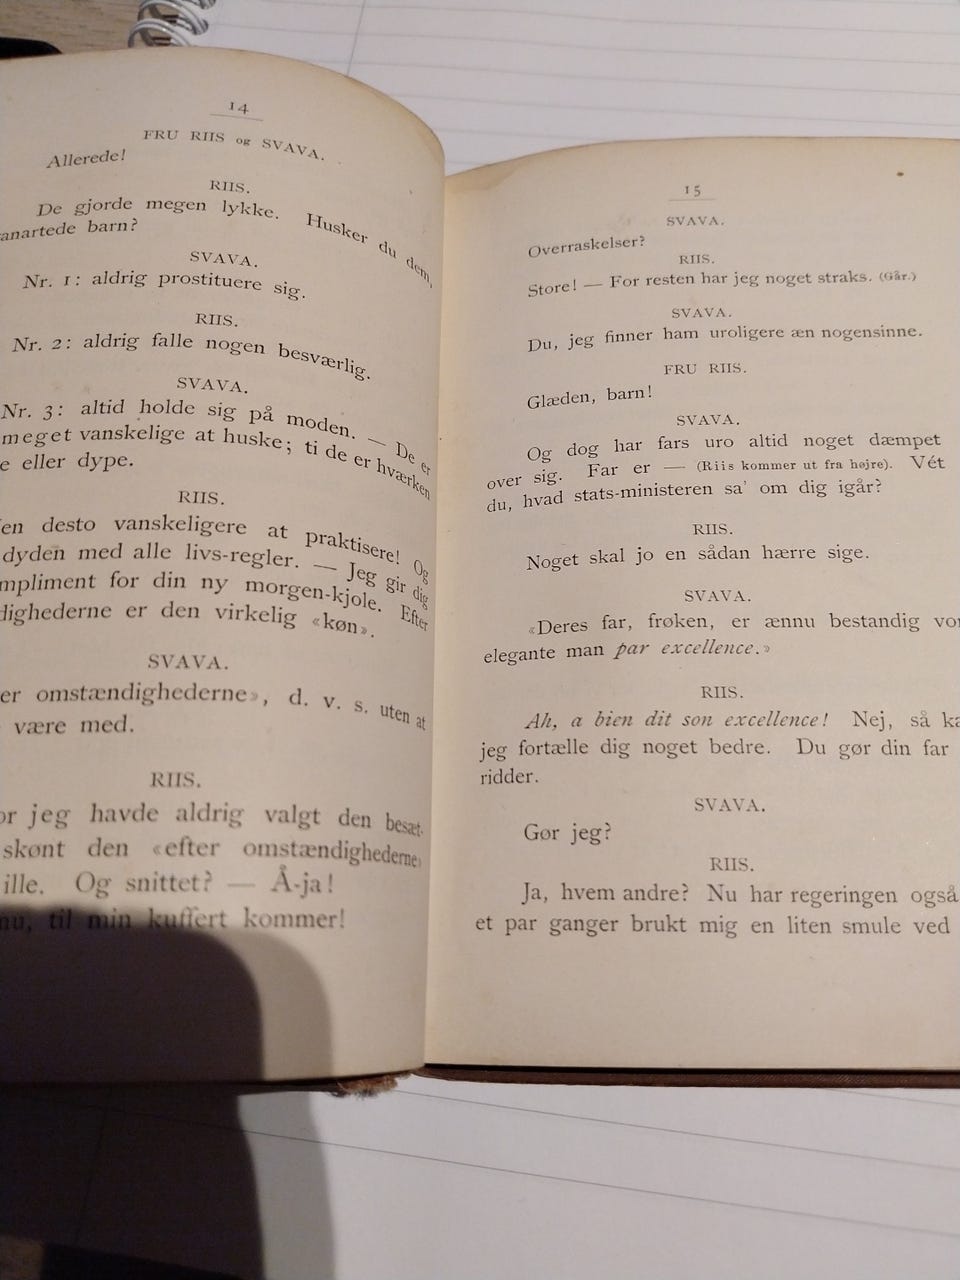 14
FRU RIIS og SVAVA.
Allerede!
RIIS.
De gjorde megen lykke. Husker du dem,
anartede barn?
SVAVA.
Nr. 1: aldrig prostituere sig.
RIIS.
Nr. 2: aldrig falle nogen besværlig.
SVAVA.
Nr. 3: altid holde sig på moden. — De er
meget vanskelige at huske; ti de er hværken
e eller dype.
RIIS.
en desto vanskeligere at praktisere! Og
dyden med alle livs-regler. — Jeg gir dig
mpliment for din ny morgen-kjole. Efter
dighederne er den virkelig «køn».
SVAVA.
er omstændighederne», d. v. s. uten at
være med.
RIIS.
or jeg havde aldrig valgt den besæt-
skønt den «efter omstændighederne»
ille. Og snittet? — Å-ja!
nu, til min kuffert kommer!
15
SVAVA.
Overraskelser?
RIIS.
Store! — For resten har jeg noget straks. (Går.)
SVAVA.
Du, jeg finner ham uroligere æn nogensinne.
FRU RIIS.
Glæden, barn!
SVAVA.
Og dog har fars uro altid noget dæmpet
over sig. Far er — (Riis kommer ut fra højre). Vét
du, hvad stats-ministeren sa' om dig igår?
RIIS.
Noget skal jo en sådan hærre sige.
SVAVA.
«Deres far, frøken, er ænnu bestandig vor
elegante man par excellence.»
RIIS.
Ah, a bien dit son excellence! Nej, så ka
jeg fortælle dig noget bedre. Du gør din far
ridder.
SVAVA.
Gør jeg?
RIIS.
Ja, hvem andre? Nu har regeringen også
et par ganger brukt mig en liten smule ved